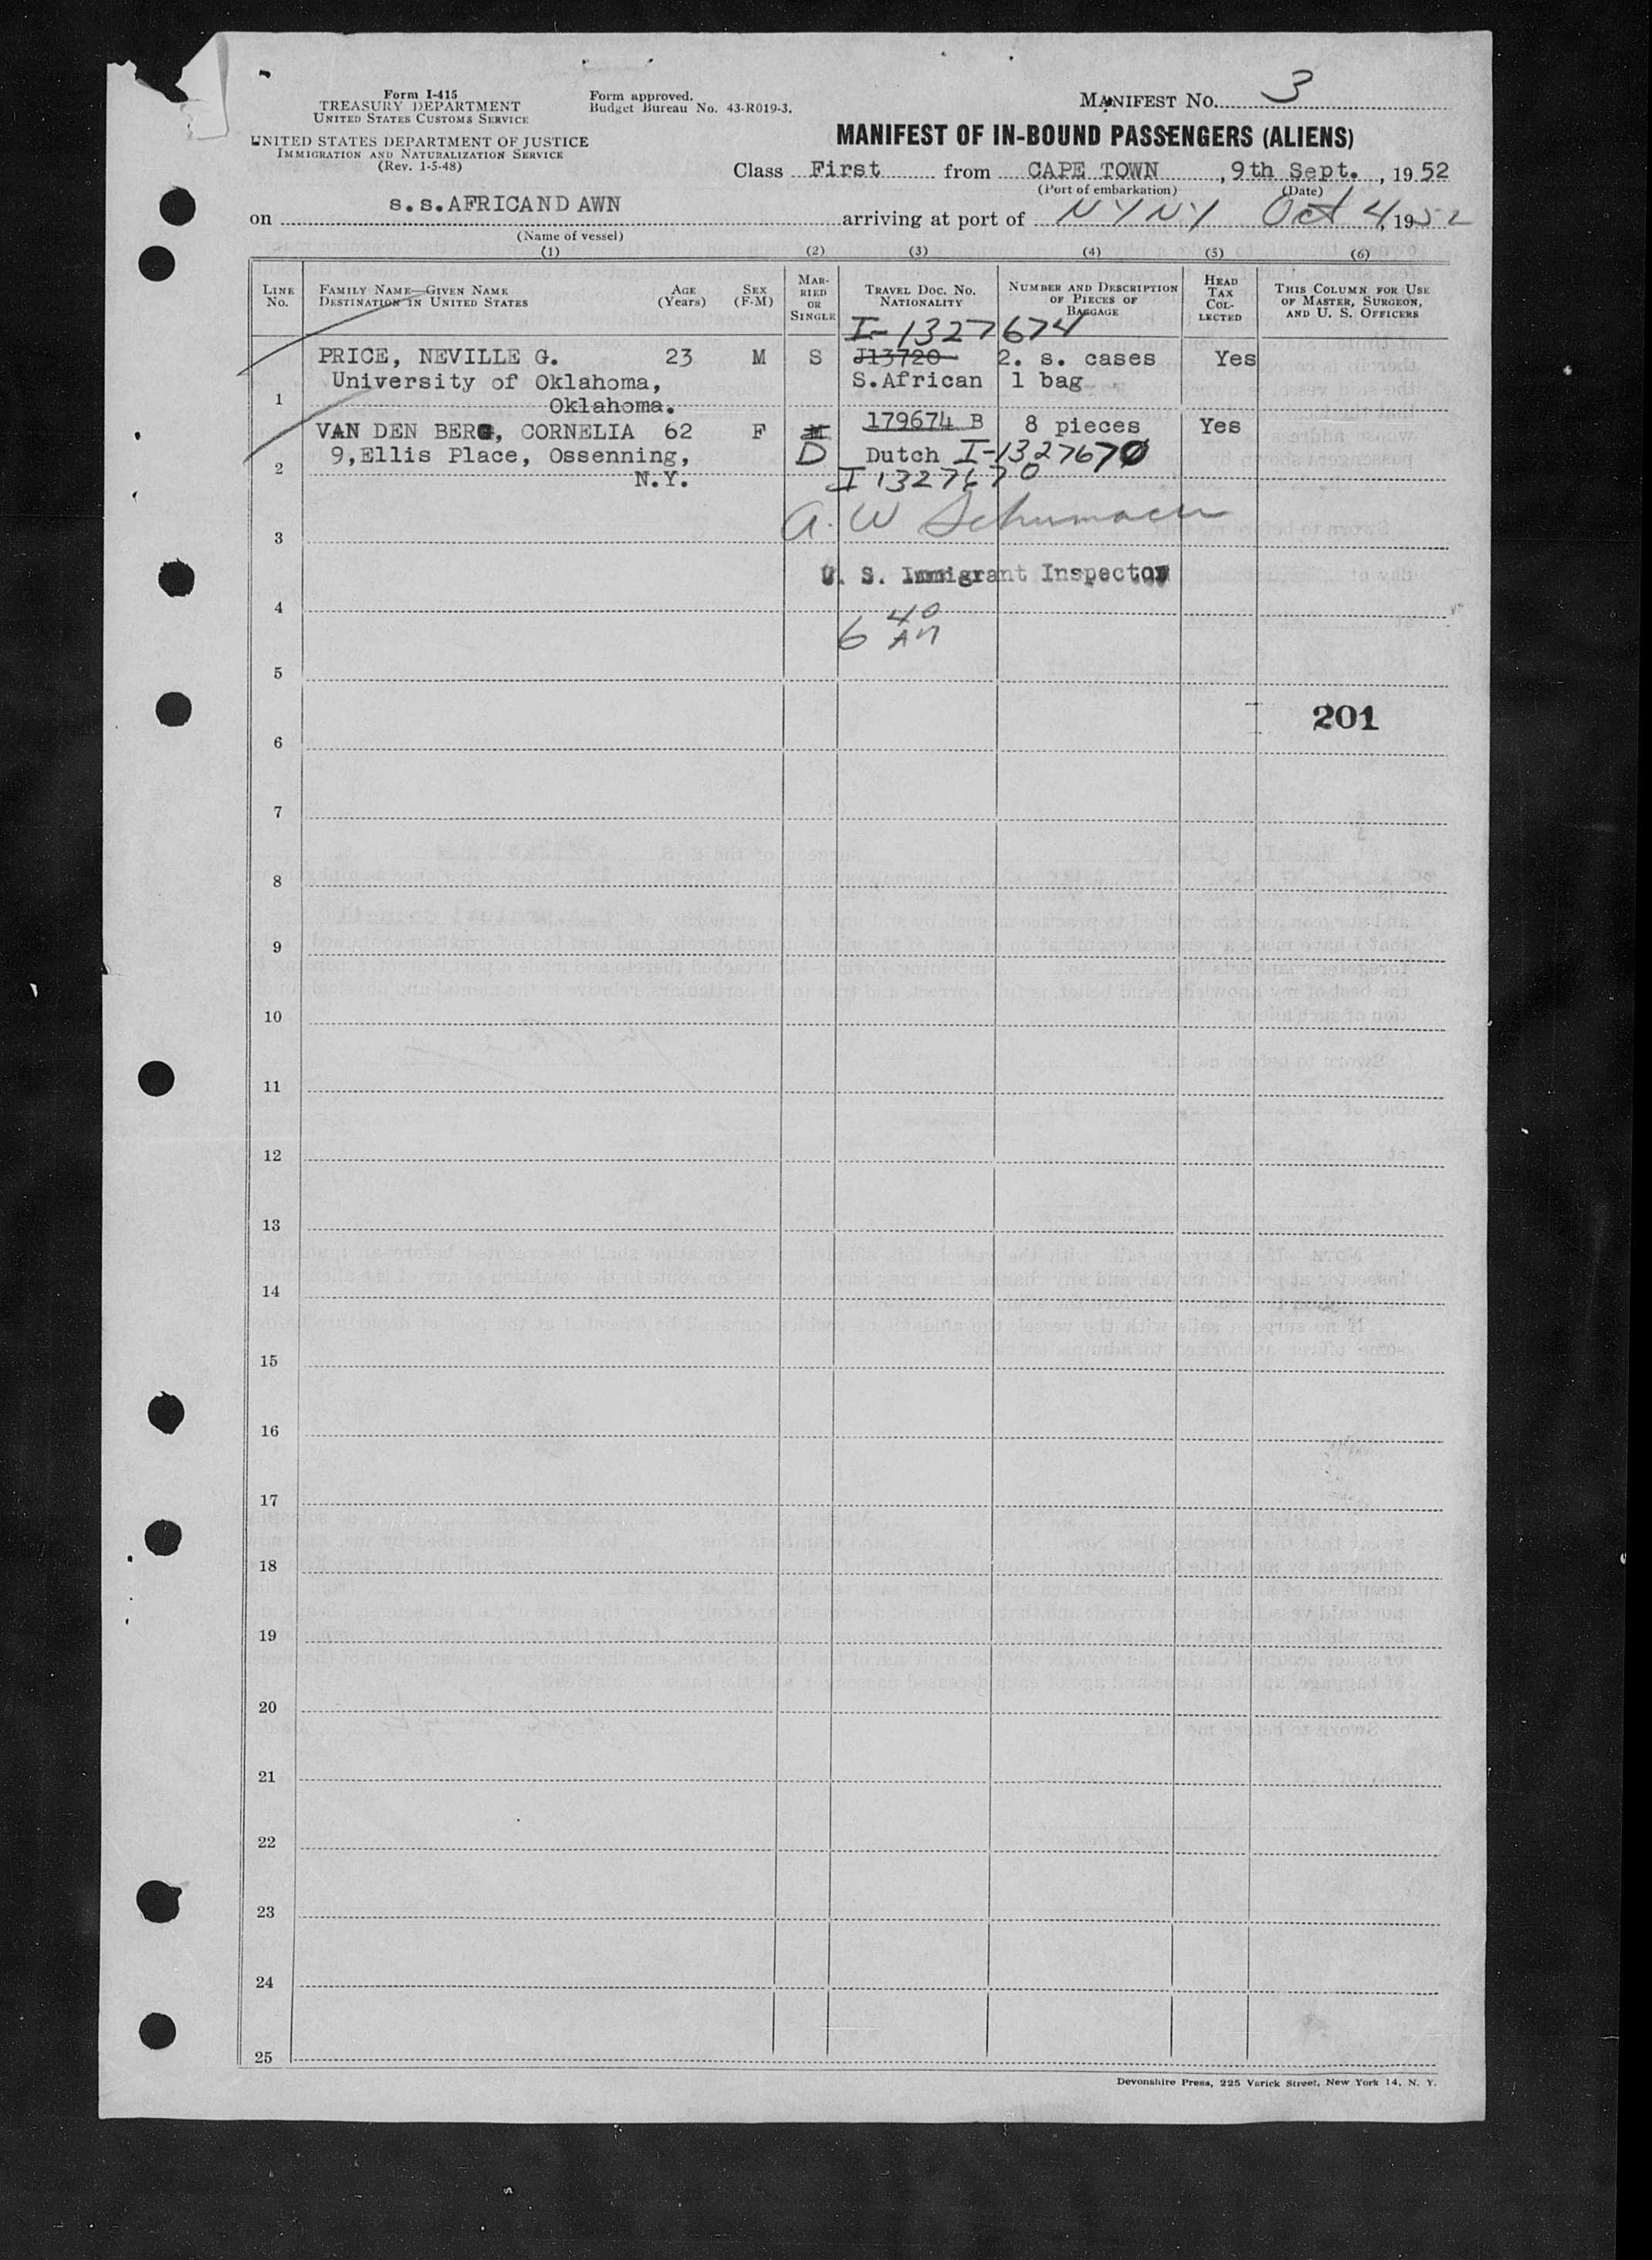 Form I-415
TREASURY DEPARTMENT
UNITED STATES CUSTOMS SERVICE
UNITED STATES DEPARTMENT OF JUSTICE
IMMIGRATION AND NATURALIZATION SERVICE
(Rev. 1-5-48)
Form approved.
Budget Bureau No. 43-R019-3.
MANIFEST NO. 3
MANIFEST OF IN-BOUND PASSENGERS (ALIENS)
Class First from CAPE TOWN, 9th Sept., 1952
(Port of embarkation) (Date)
on s.s.AFRICAND AWN arriving at port of NYNY Oct 4, 1952
(Name of vessel)
(1) (2) (3) (4) (5) (6)
LINE No. FAMILY NAME—GIVEN NAME DESTINATION IN UNITED STATES AGE (Years) SEX (F-M) MARRIED OR SINGLE TRAVEL DOC. NO. NATIONALITY NUMBER AND DESCRIPTION OF PIECES OF BAGGAGE HEAD TAX COLLECTED THIS COLUMN FOR USE OF MASTER, SURGEON, AND U. S. OFFICERS
I-1327674
PRICE, NEVILLE G. 23 M S J13720 2. s. cases Yes
University of Oklahoma, S.African 1 bag
1 Oklahoma.
VAN DEN BERG, CORNELIA 62 F M 179674 B 8 pieces Yes
9,Ellis Place, Ossenning, D Dutch I-1327670
2 N.Y. I 1327670
A. W Schumacher
3
U. S. Immigrant Inspector
4
6 40 AM
5
201
6
7
8
9
10
11
12
13
14
15
16
17
18
19
20
21
22
23
24
25
Devonshire Press, 225 Varick Street, New York 14, N. Y.